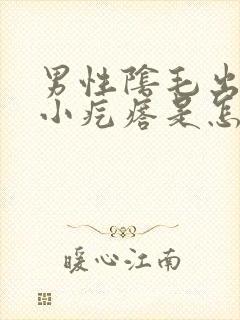 男性陰毛出
小疙瘩是怎
暖心江南